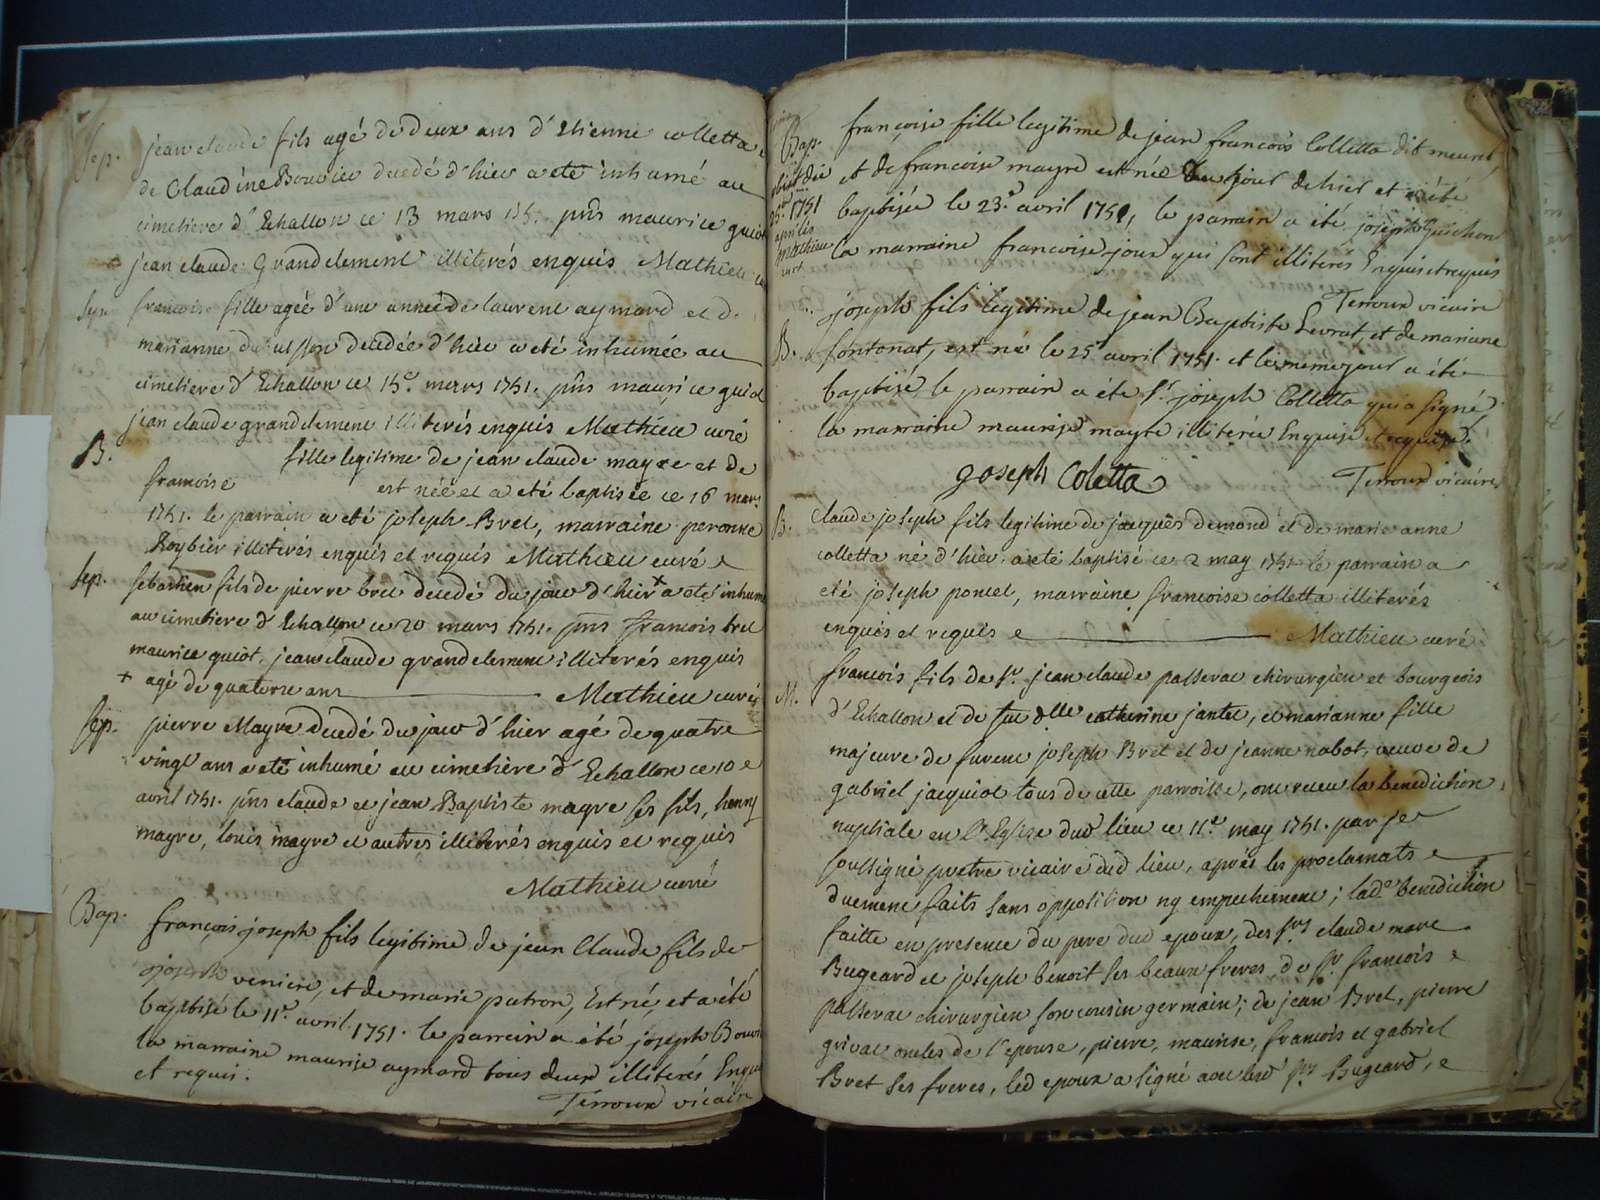 Sep. jean claude fils agé de deux ans d'Etienne colletta
de Claudine Bouvier decedé d'hier a eté inhumé au
cimetiere d'Echallon ce 13 mars pns maurice guiot
jean claude Grandclement illiterés enquis Mathieu
francoise fille agée d'une année de laurent aymard et d.
marianne decedée d'hier a eté inhumée au
cimetiere d'Echallon ce 15e. mars 1751. pns maurice guiot
jean claude grandclement illiterés enquis Mathieu curé
B. fille legitime de jean claude mayre et de
francoise est née et a eté baptisée ce 16 mars
1751. le parrain a eté joseph Bret, marraine peronne
Roybier illiterés enquis et requis Mathieu curé
Sep. sebastien fils de pierre bret decedé du jour d'hier + a eté inhumé
au cimetiere d'Echallon ce 20 mars 1751. pns francois bret
maurice guiot, jean claude grandclement illiterés enquis
+ agé de quatorze ans Mathieu curé
Sep. pierre Mayre decedé du jour d'hier agé de quatre
vingt ans a eté inhumé au cimetière d'Echallon ce 10e
avril 1751. pns claude et jean Baptiste mayre ses fils, henry
mayre, louis mayre et autres illiterés enquis et requis
Mathieu curé
Bap. françois joseph fils legitime de jean Claude fils de
joseph veniere, et de marie patron, Est né, et a été
baptisé le 11e. avril 1751. le parrain a été joseph
la marraine maurise aymard tous deux illiterés
et requis.
Terroux vicaire
Bap. françoise fille legitime de jean françois Colletta dit
et de francoise mayre est née jour de hier et a été
25 1751 baptisée le 23e. avril 1751, le parrain a été joseph Guichon
Mathieu la marraine francoise joux qui sont illiterés Enquis et requis
Terroux vicaire
joseph fils legitime de jean Baptiste Levrat, et de mariane
B. fontonat, est né le 25e avril 1751. et le meme jour a été
baptisé, le parrain a été Sr. joseph Colletta qui a signé,
la marraine maurise mayre illiterée Enquise et requise.
joseph Coletta Terroux vicaire
B. Claude joseph fils legitime de jacques demond et de marie anne
colletta né d'hier a eté baptisé ce 2 may 1751 le parrain a
eté joseph poncet, marraine francoise colletta illiterés
enquis et requis Mathieu curé
M. francois fils de Sr. jean claude passerat chirurgien et bourgeois
d'Echallon et de fue dlle catherine jantet, et marianne fille
majeure de furent joseph Bret et de jeanne nabot, veuve de
gabriel jacquiot tous de cette parroisse, ont receu la benediction
nuptiale en l'Eglise dud lieu ce 11e. may 1751. par je
soussigné pretre vicaire dud lieu, après les proclamats
duement faits sans opposition ny empechement; lade benediction
faitte en presence du pere dud epoux, des Srs claude marc
Bugeard et joseph benoit ses beaux freres, de Sr francois
passerat chirurgien son cousin germain; de jean Bret, pierre
grivat oncles de l'epouse, pierre, maurise, francois et gabriel
Bret ses freres, led epoux a signé avec lesd Srs Bugeard,